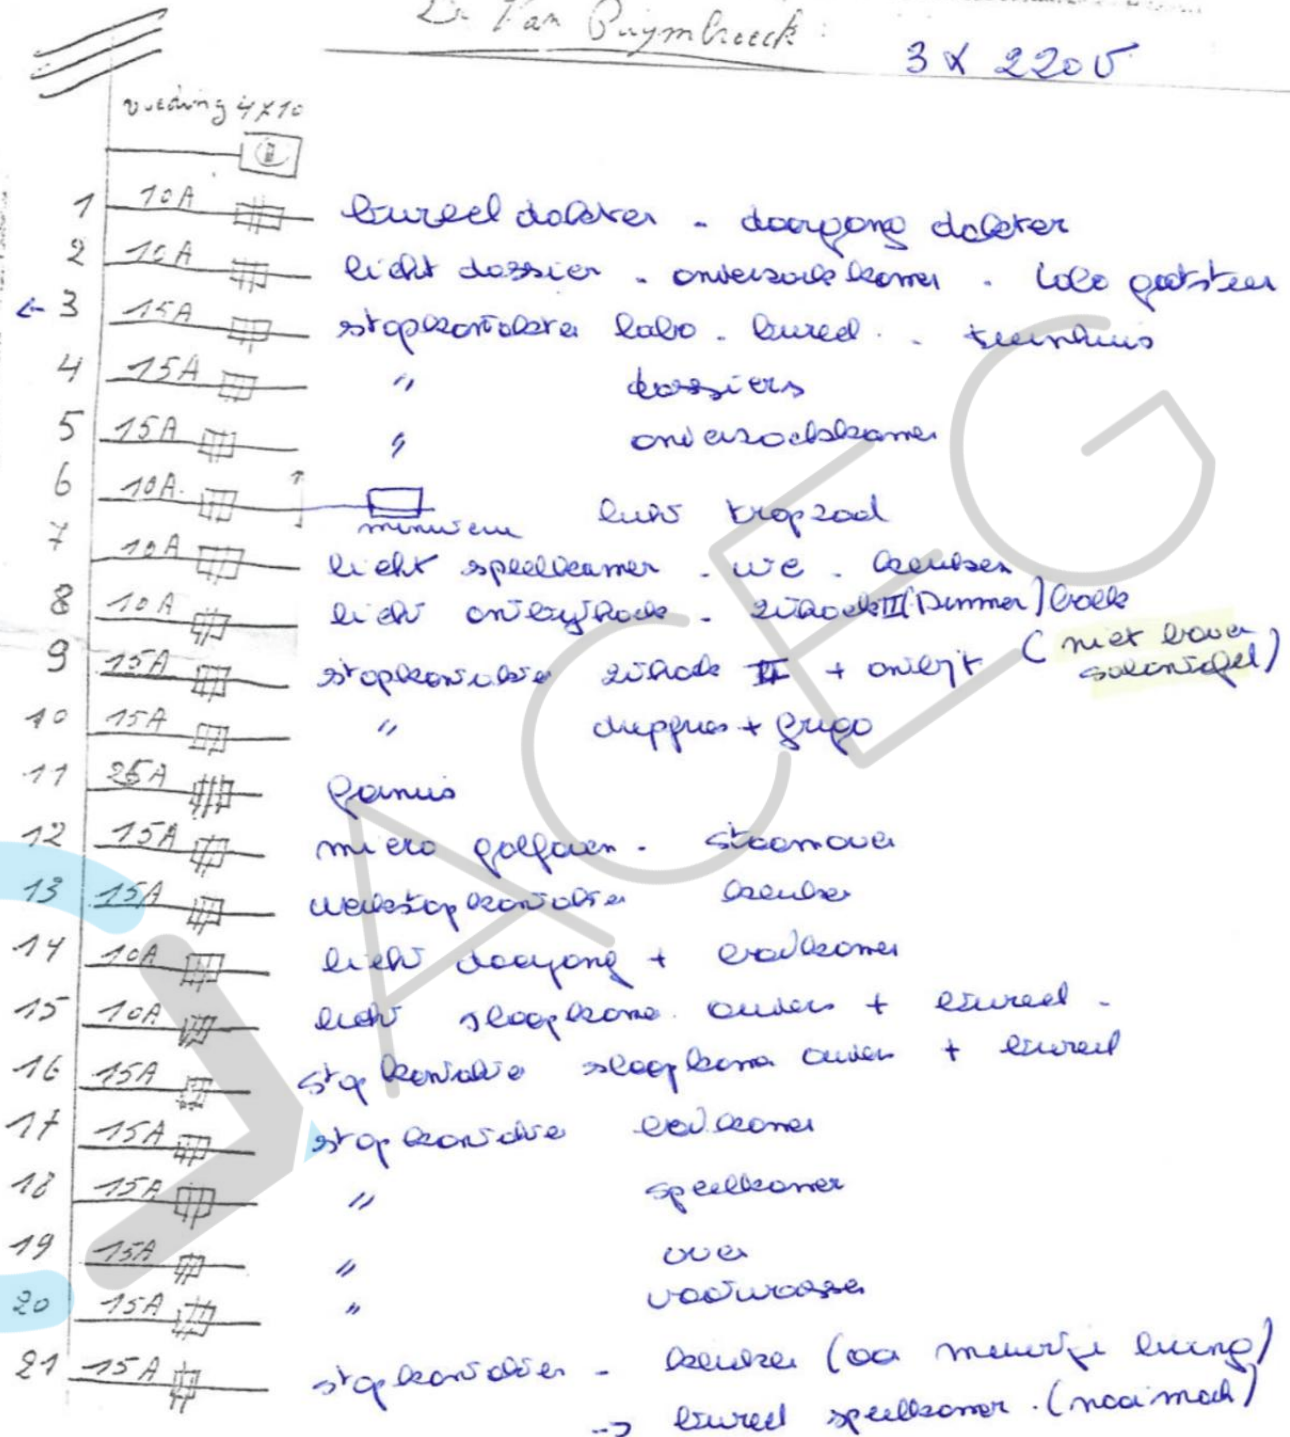 Dr Van Puymbroeck :
3 x 220V
voeding 4x10
1 10A bureel dokter - doorgang dokter
2 10A licht dossier - onderzoekkamer - labo
← 3 15A stopkontakten labo - bureel - tuinhuis
4 15A " dossiers
5 15A " onderzoekskamer
6 10A licht trapzaal
minuterie
7 10A licht speelkamer - wc - keuken
8 10A licht ontbijthoek - zithoek III (Dimmer)
9 15A stopkontakten zithoek II + ontbijt (niet boven
salontafel)
10 15A " + frigo
11 25A fornuis
12 15A micro golfoven - stoomoven
13 15A werkstopkontakten keuken
14 10A licht doorgang + badkamer
15 10A licht slaapkamer ouders + bureel -
16 15A stopkontakten slaapkamer ouders + bureel
17 15A stopkontakten badkamer
18 15A " speelkamer
19 15A " oven
20 15A " vaatwasser
21 15A stopkontakten - keuken (aan muurtje living)
→ bureel speelkamer. (naaimach)
ACEG